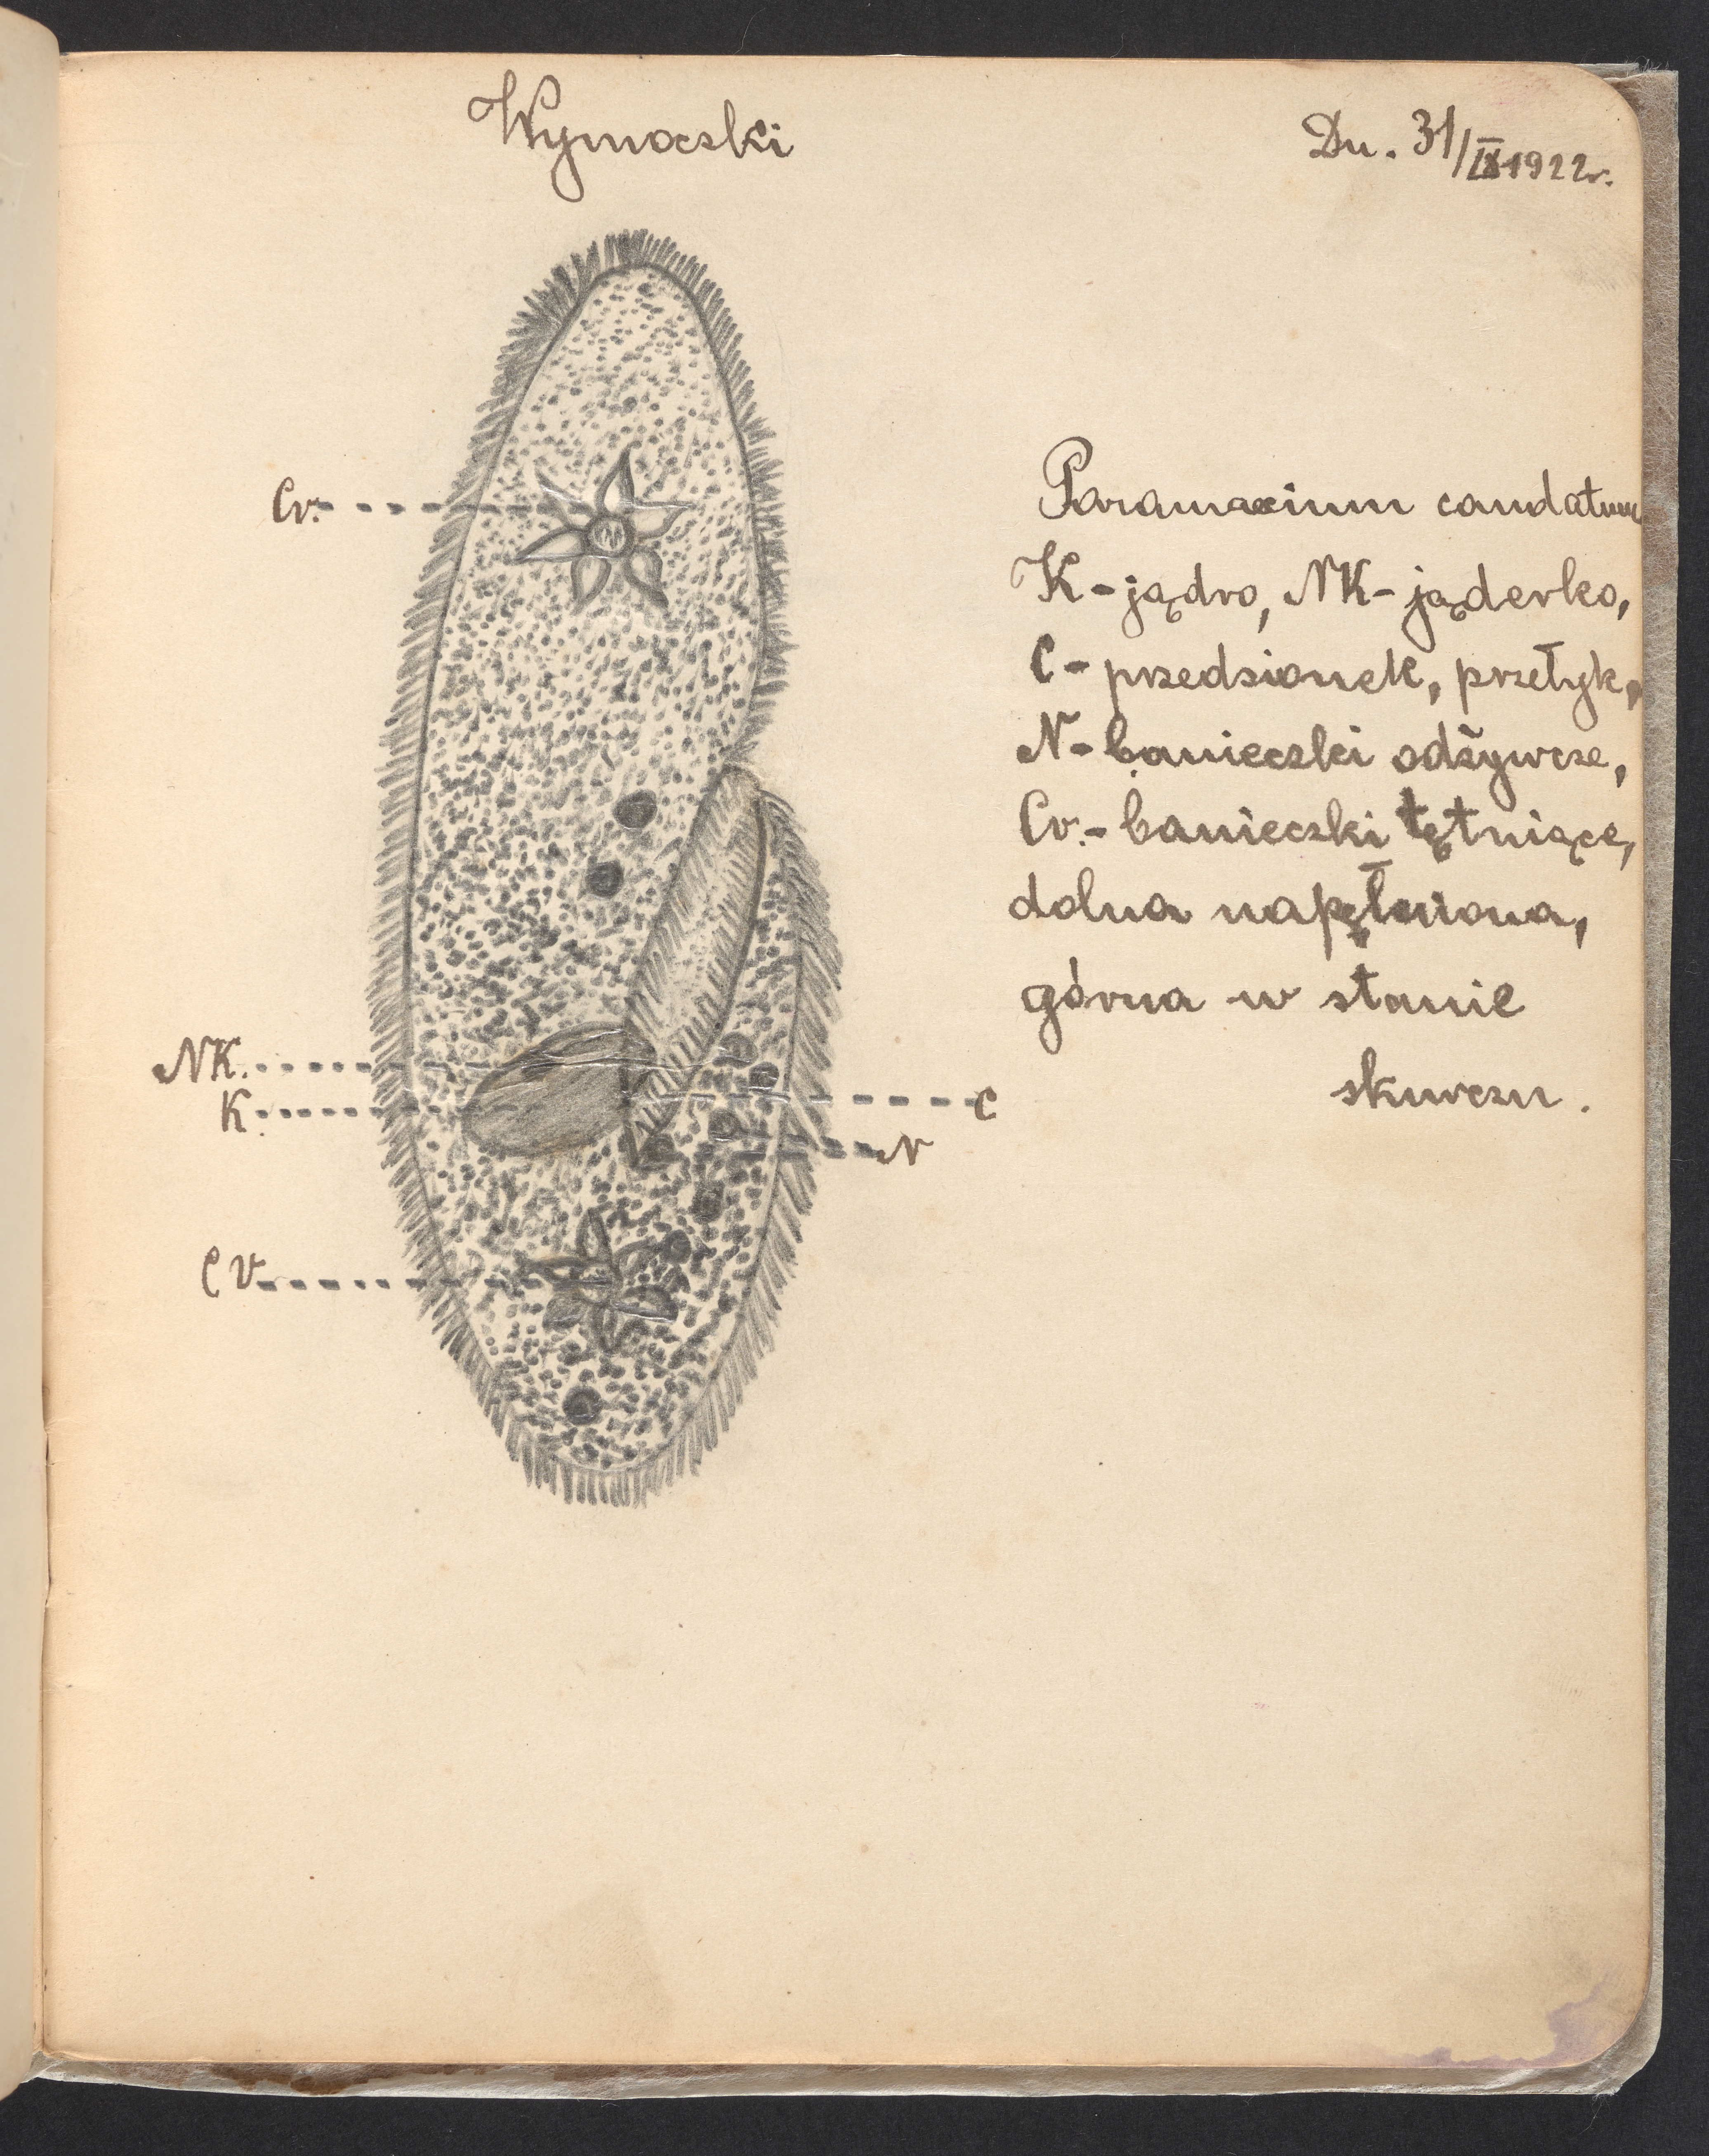 Wymoczki
Dn. 31/IX 1922r.
Cv.
Paramaecium caudatum
K - jądro, NK - jąderko,
C - przedsionek, przełyk,
N - banieczki odżywcze,
Cv. - banieczki tętniące,
dolna napełniona,
górna w stanie
skurczu.
NK.
K.
C
N
CV